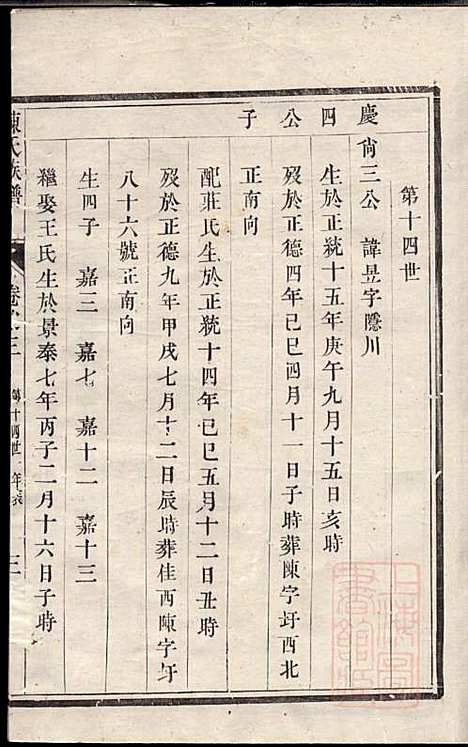 第十四世
慶四公子
尙三公 諱昱字隱川
生於正統十五年庚午九月十五日亥時
歿於正德四年己巳四月十一日子時葬陳字圩西北
正南向
配莊氏生於正統十四年己巳五月十二日丑時
歿於正德九年甲戌七月十二日辰時葬佳西陳字圩
八十六號正南向
生四子 嘉三 嘉七 嘉十二 嘉十三
繼娶王氏生於景泰七年丙子二月十六日子時
陳氏族譜
第十四世 年表